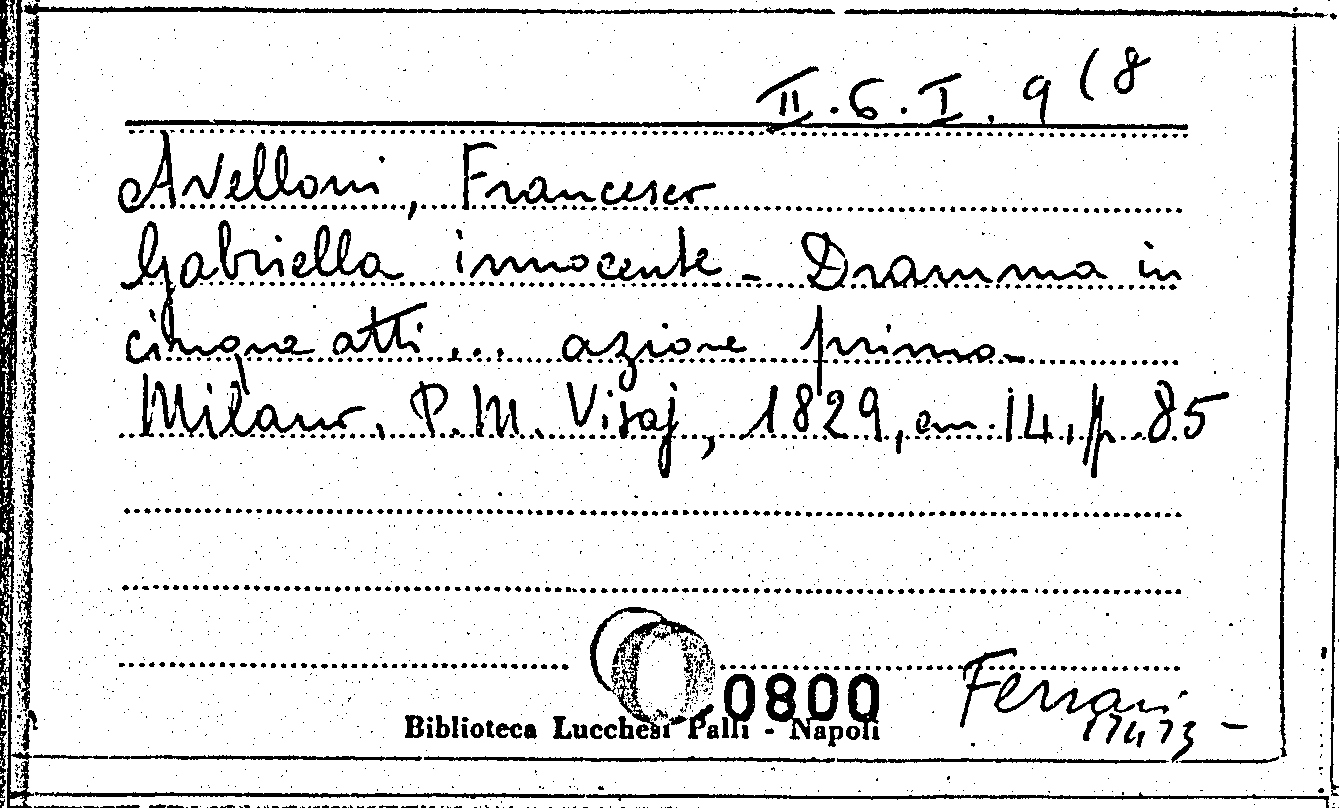 II.6.I.9(8
Avelloni, Francesco
Gabriella innocente - Dramma in
cinque atti... azione prima -
Milano, P.M. Visaj, 1829, cm.14, p.85
0800 Ferrari
Biblioteca Lucchesi Palli - Napoli